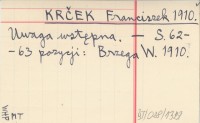 KRČEK Franciszek 1910.
Uwaga wstępna. — S. 62-
-63 pozycji: Brzega W. 1910.
MT